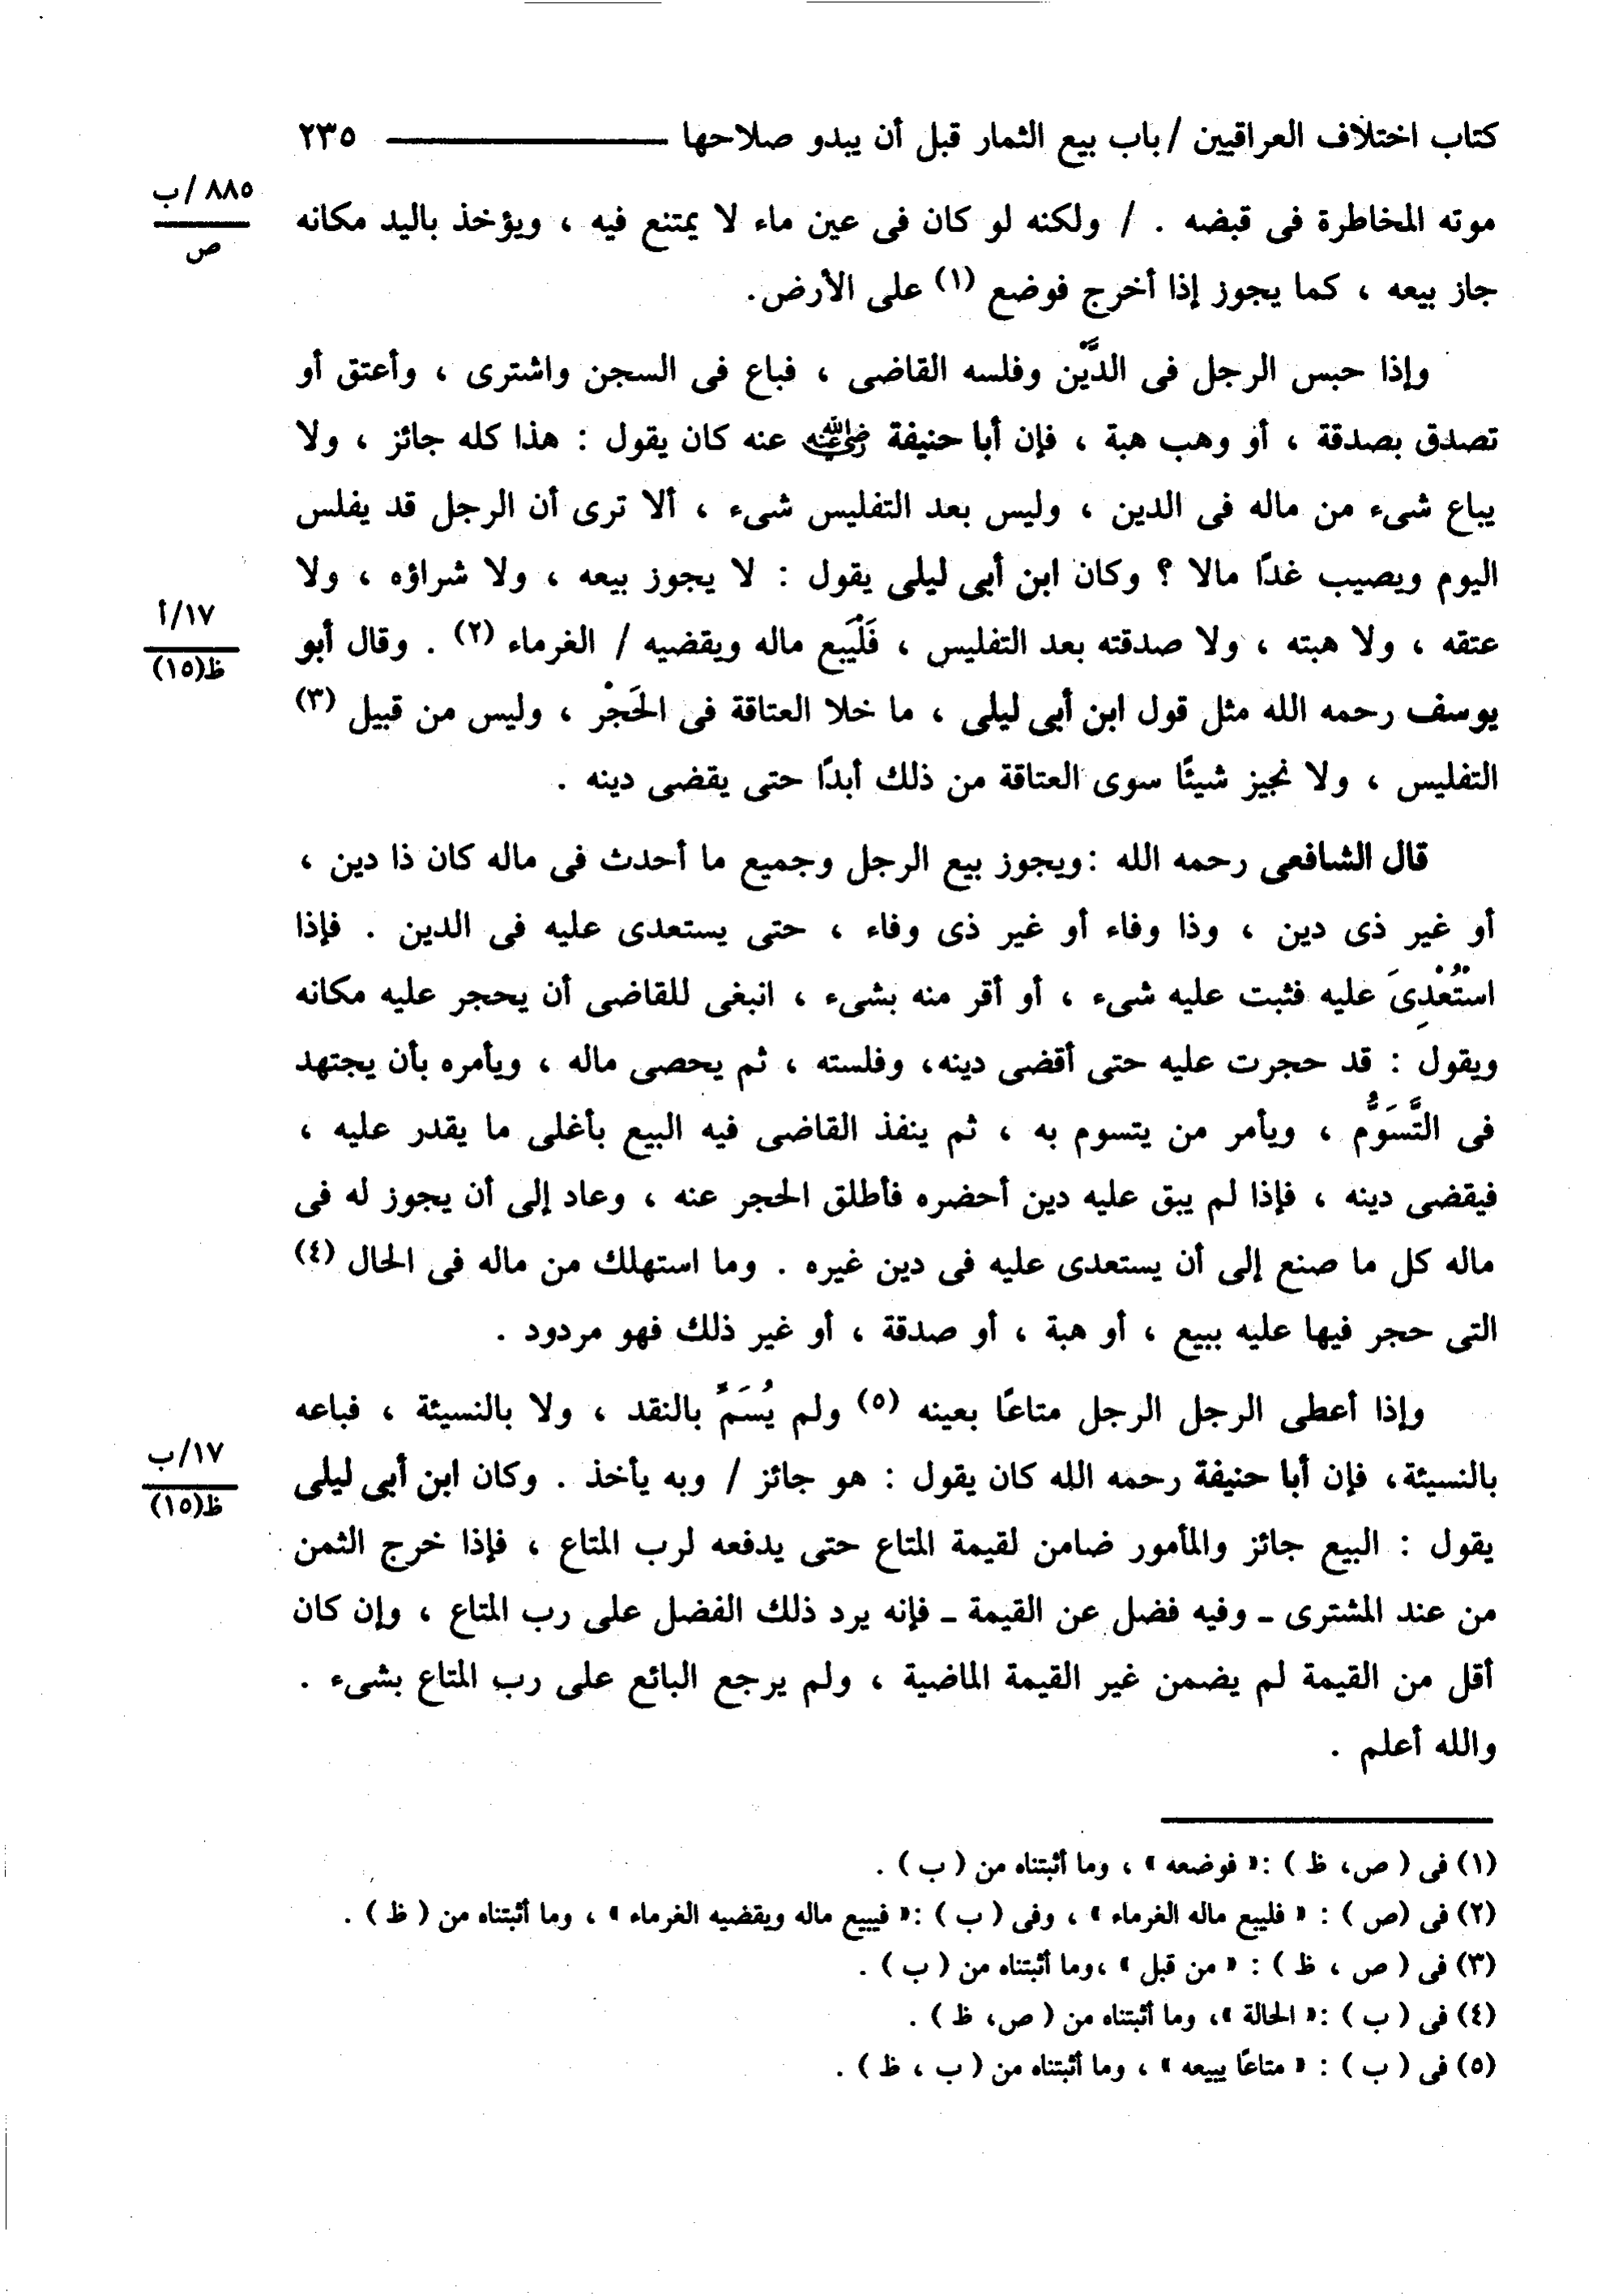 كتاب اختلاف العراقيين / باب بيع الثمار قبل أن يبدو صلاحها ــــــــــ ٢٣٥
٨٨٥/ب
ص
موته المخاطرة فى قبضه . / ولكنه لو كان فى عين ماء لا يمتنع فيه ، ويؤخذ باليد مكانه
جاز بيعه ، كما يجوز إذا أخرج فوضع (١) على الأرض.
وإذا حبس الرجل فى الدَّيْن وفلسه القاضى ، فباع فى السجن واشترى ، وأعتق أو
تصدق بصدقة ، أو وهب هبة ، فإن أبا حنيفة رضي الله عنه عنه كان يقول : هذا كله جائز ، ولا
يباع شىء من ماله فى الدين ، وليس بعد التفليس شىء ، ألا ترى أن الرجل قد يفلس
اليوم ويصيب غدًا مالا ؟ وكان ابن أبى ليلى يقول : لا يجوز بيعه ، ولا شراؤه ، ولا
١٧/أ
ظ(١٥)
عتقه ، ولا هبته ، ولا صدقته بعد التفليس ، فَلْيَبع ماله ويقضيه / الغرماء (٢) . وقال أبو
يوسف رحمه الله مثل قول ابن أبى ليلى ، ما خلا العتاقة فى الحَجْر ، وليس من قبيل (٣)
التفليس ، ولا نجيز شيئًا سوى العتاقة من ذلك أبدًا حتى يقضى دينه .
قال الشافعى رحمه الله :ويجوز بيع الرجل وجميع ما أحدث فى ماله كان ذا دين ،
أو غير ذى دين ، وذا وفاء أو غير ذى وفاء ، حتى يستعدى عليه فى الدين . فإذا
اسْتُعْدِىَ عليه فثبت عليه شىء ، أو أقر منه بشىء ، انبغى للقاضى أن يحجر عليه مكانه
ويقول : قد حجرت عليه حتى أقضى دينه، وفلسته ، ثم يحصى ماله ، ويأمره بأن يجتهد
فى التَّسَوُّم ، ويأمر من يتسوم به ، ثم ينفذ القاضى فيه البيع بأغلى ما يقدر عليه ،
فيقضى دينه ، فإذا لم يبق عليه دين أحضره فأطلق الحجر عنه ، وعاد إلى أن يجوز له فى
ماله كل ما صنع إلى أن يستعدى عليه فى دين غيره . وما استهلك من ماله فى الحال (٤)
التى حجر فيها عليه ببيع ، أو هبة ، أو صدقة ، أو غير ذلك فهو مردود .
وإذا أعطى الرجل الرجل متاعًا بعينه (٥) ولم يُسَمِّ بالنقد ، ولا بالنسيئة ، فباعه
١٧/ب
ظ(١٥)
بالنسيئة، فإن أبا حنيفة رحمه الله كان يقول : هو جائز / وبه يأخذ . وكان ابن أبى ليلى
يقول : البيع جائز والمأمور ضامن لقيمة المتاع حتى يدفعه لرب المتاع ، فإذا خرج الثمن
من عند المشترى ـ وفيه فضل عن القيمة ـ فإنه يرد ذلك الفضل على رب المتاع ، وإن كان
أقل من القيمة لم يضمن غير القيمة الماضية ، ولم يرجع البائع على رب المتاع بشىء .
والله أعلم .
(١) فى ( ص، ظ ) :« فوضعه » ، وما أثبتناه من ( ب ) .
(٢) فى (ص ) : « فليبع ماله الغرماء » ، وفى ( ب ) :« فيبيع ماله ويقضيه الغرماء » ، وما أثبتناه من ( ظ ) .
(٣) فى ( ص ، ظ ) : « من قبل » ،وما أثبتناه من ( ب ) .
(٤) فى ( ب ) :« الحالة »، وما أثبتناه من ( ص، ظ ) .
(٥) فى ( ب ) : « متاعًا يبيعه » ، وما أثبتناه من ( ب ، ظ ) .